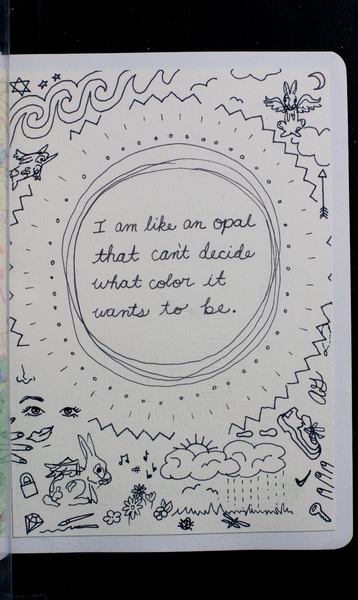 I am like an opal
that can't decide
what color it
wants to be.